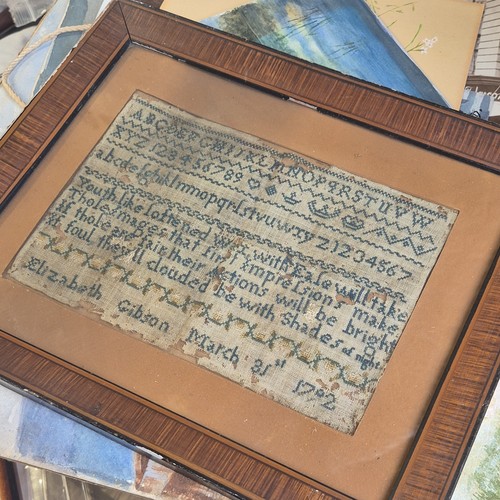 ABCDEFGHIJKLMNOPQRSTUVW
XYZ 123456789
abcdefghiklmnopqrſstuvwxyz 1234567
Youth like ſoftened Wax with Eaſe will take
Thoſe Images that firſt Impreſsions make
If thoſe are
actions will be bright
If foul they'll clouded be with Shades of night
Elizabeth Gibson March 31st 1792